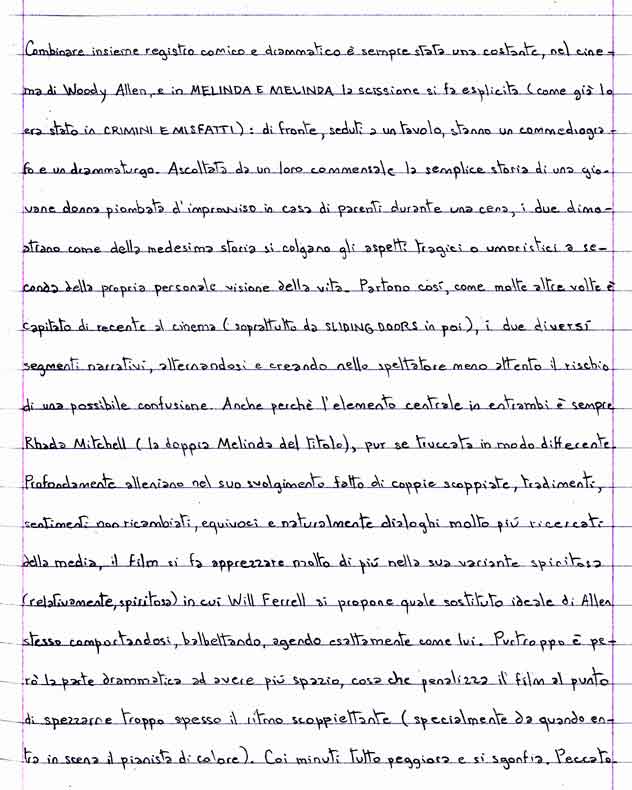 Combinare insieme registro comico e drammatico è sempre stata una costante, nel cine-
ma di Woody Allen, e in MELINDA E MELINDA la scissione si fa esplicita (come già lo
era stato in CRIMINI E MISFATTI): di fronte, seduti a un tavolo, stanno un commediogra-
fo e un drammaturgo. Ascoltata da un loro commensale la semplice storia di una gio-
vane donna piombata d'improvviso in casa di parenti durante una cena, i due dimo-
strano come della medesima storia si colgano gli aspetti tragici o umoristici a se-
conda della propria personale visione della vita. Partono così, come molte altre volte è
capitato di recente al cinema (soprattutto da SLIDING DOORS in poi), i due diversi
segmenti narrativi, alternandosi e creando nello spettatore meno attento il rischio
di una possibile confusione. Anche perchè l'elemento centrale in entrambi è sempre
Rhada Mitchell (la doppia Melinda del titolo), pur se truccata in modo differente.
Profondamente alleniano nel suo svolgimento fatto di coppie scoppiate, tradimenti,
sentimenti non ricambiati, equivoci e naturalmente dialoghi molto più ricercati
della media, il film si fa apprezzare molto di più nella sua variante spiritosa
(relativamente, spiritosa) in cui Will Ferrell si propone quale sostituto ideale di Allen
stesso comportandosi, balbettando, agendo esattamente come lui. Purtroppo è pe-
rò la parte drammatica ad avere più spazio, cosa che penalizza il film al punto
di spezzarne troppo spesso il ritmo scoppiettante (specialmente da quando en-
tra in scena il pianista di colore). Coi minuti tutto peggiora e si sgonfia. Peccato.